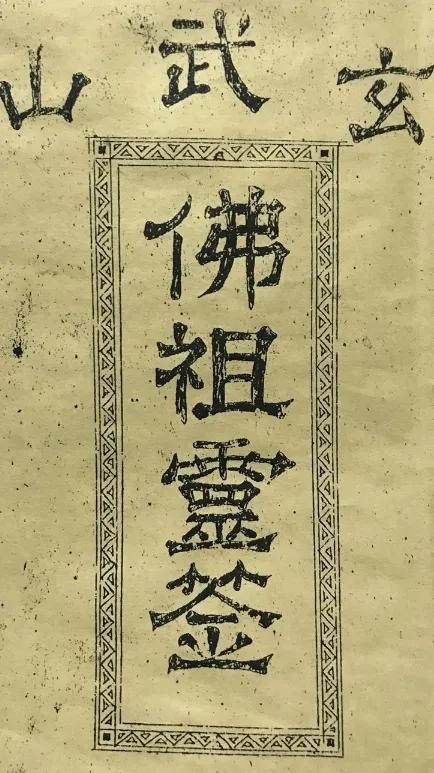 玄武山
佛祖靈签